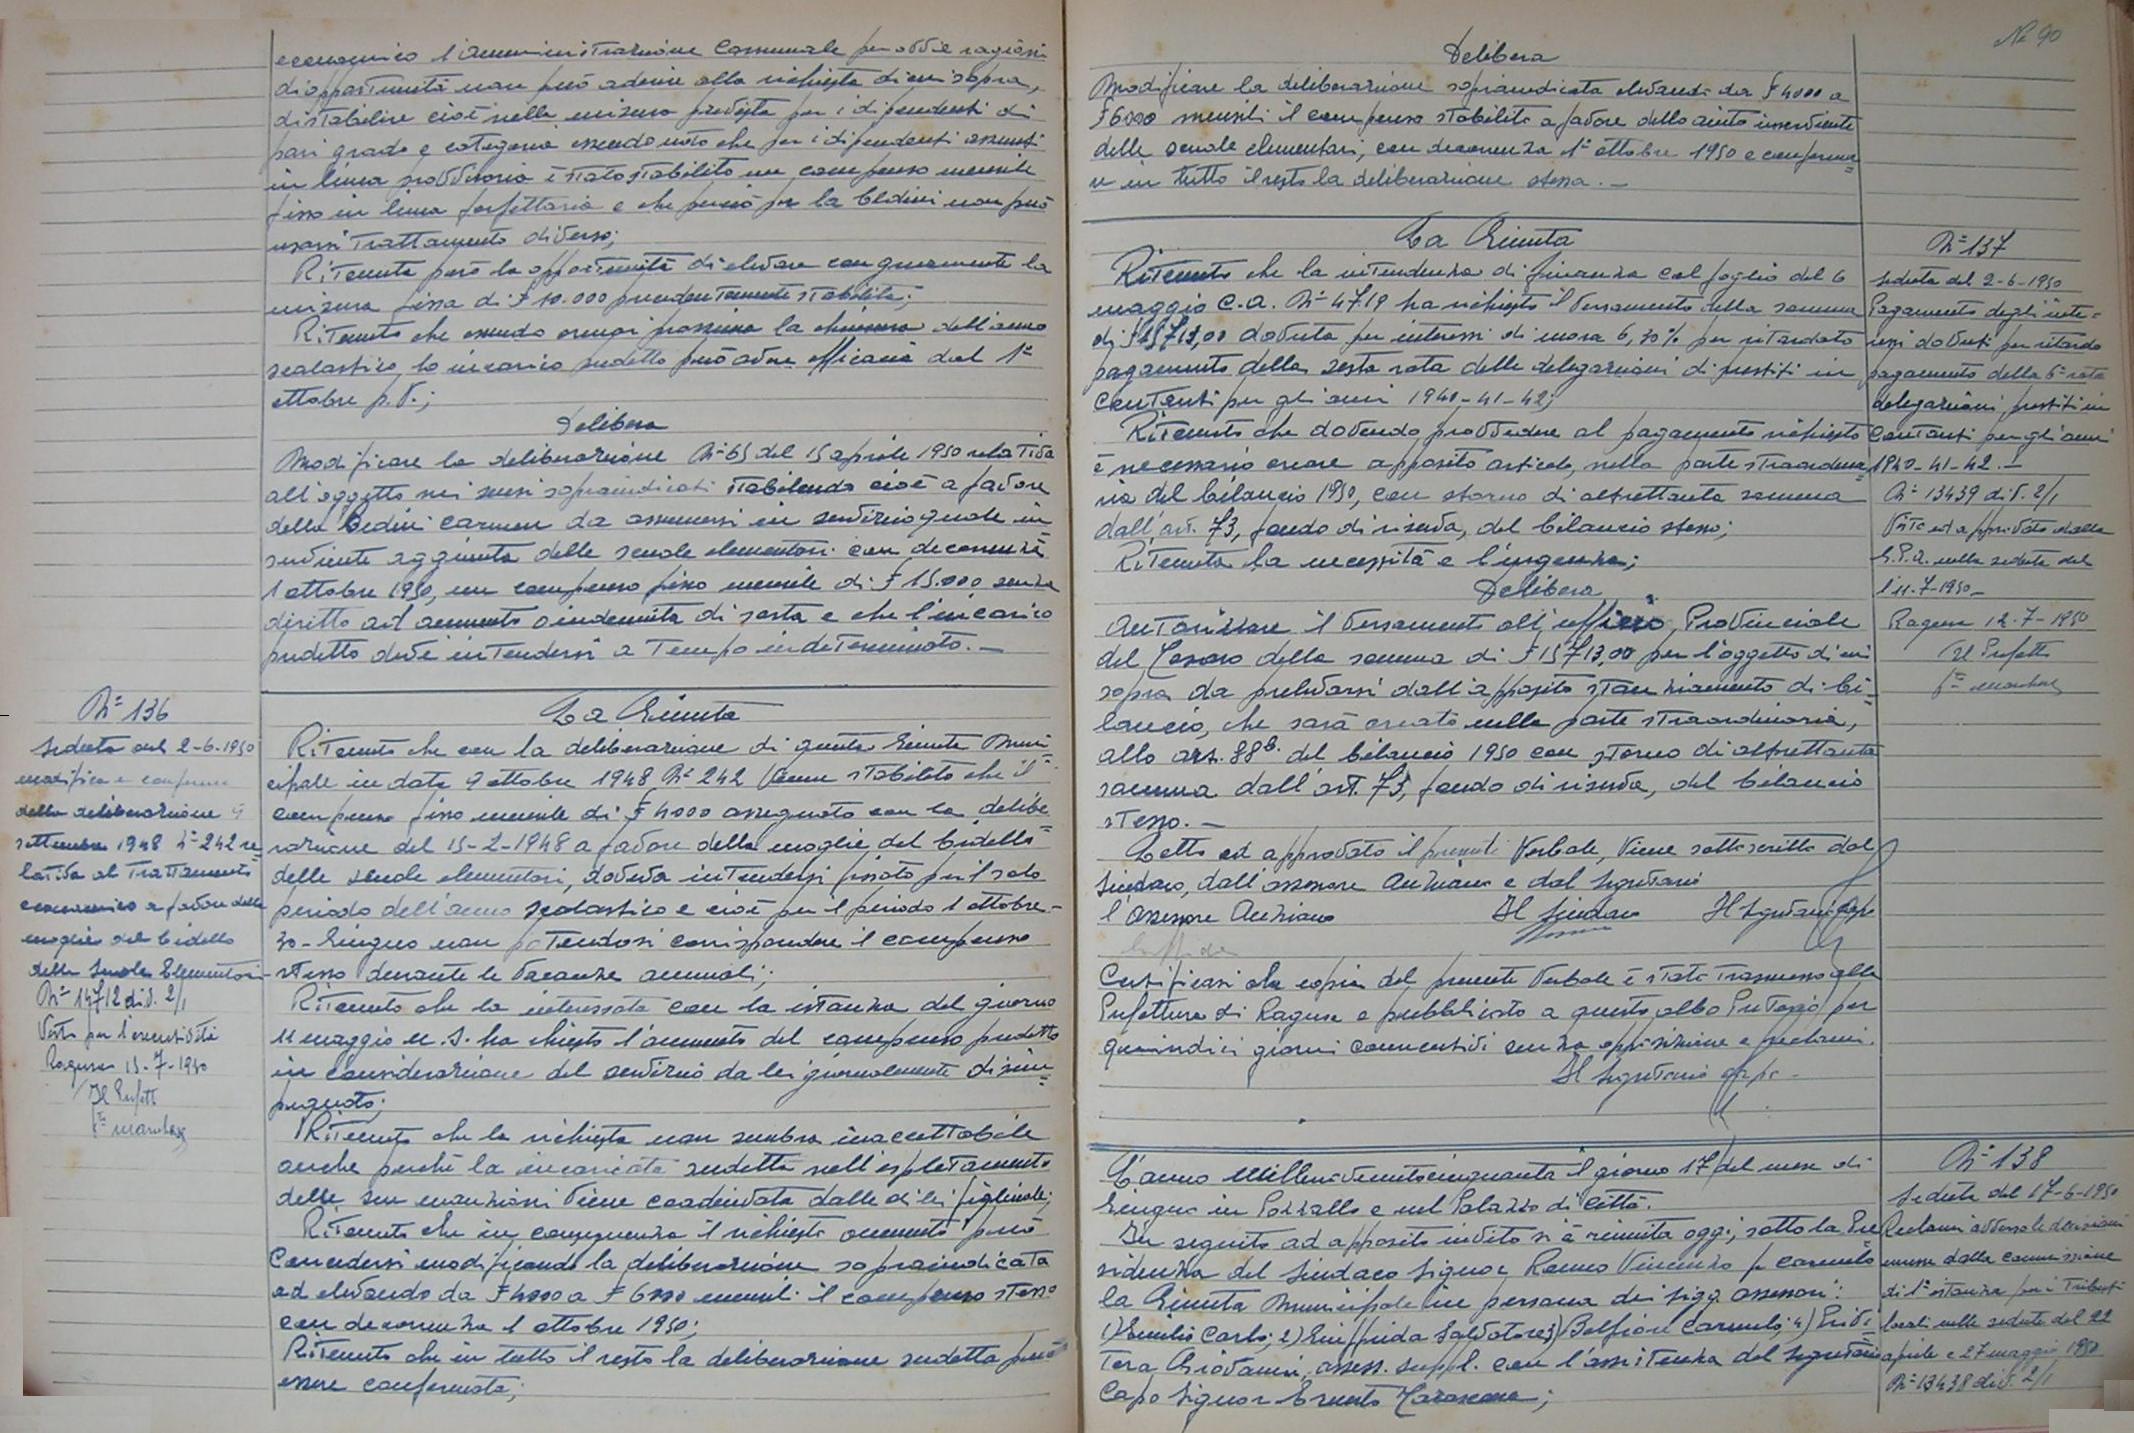 economico l'amministrazione comunale per ovvie ragioni
di opportunità non può aderire alla richiesta di cui sopra,
di stabilire cioè nella misura prevista per i dipendenti di
pari grado e categoria essendo noto che per i dipendenti assunti
in linea provvisoria è stato stabilito un compenso mensile
fisso in linea forfettaria e che perciò per la Bedini non può
usarsi trattamento diverso;
Ritenuta però la opportunità di elevare congruamente la
misura fissa di £ 10.000 precedentemente stabilita;
Ritenuto che essendo ormai prossima la chiusura dell'anno
scolastico, lo incarico predetto può avere efficacia dal 1°
ottobre p.v.;
Delibera
Modificare la deliberazione N° 65 del 15 aprile 1950 relativa
all'oggetto nei sensi sopraindicati stabilendo cioè a favore
della Bedini Carmen da assumersi in servizio quale in
serviente aggiunta delle scuole elementari con decorrenza
1 ottobre 1950, un compenso fisso mensile di £ 15.000 senza
diritto ad aumento o indennità di sorta e che l'incarico
predetto deve intendersi a tempo indeterminato. —
N° 136
Seduta del 2-6-1950
modifica e conferma
della deliberazione 9
settembre 1948 N° 242 re=
lativa al trattamento
economico a favore della
moglie del bidello
delle Scuole Elementari
N° 14712 div. 2/1
Visto per l'esecutività
Ragusa 15-7-1950
Il Prefetto
La Giunta
Ritenuto che con la deliberazione di questa Giunta Muni=
cipale in data 9 ottobre 1948 N° 242 venne stabilito che il
compenso fisso mensile di £ 4000 assegnato con la delibe=
razione del 15-2-1948 a favore della moglie del bidello
delle scuole elementari, doveva intendersi fissato per il solo
periodo dell'anno scolastico e cioè per il periodo 1 ottobre-
30-Giugno non potendosi corrispondere il compenso
stesso durante le vacanze annuali;
Ritenuto che la interessata con la istanza del giorno
11 maggio u.s. ha chiesto l'aumento del compenso predetto
in considerazione del servizio da lei giornalmente disim=
pegnato;
Ritenuto che la richiesta non sembra inaccettabile
anche perchè la incaricata sudetta nell'espletamento
delle sue mansioni viene coadiuvata dalle di lei figliuole;
Ritenuto che in conseguenza il richiesto aumento può
concedersi modificando la deliberazione sopraindicata
ed elevando da £ 4000 a £ 6000 mensili il compenso stesso
con decorrenza 1 ottobre 1950;
Ritenuto che in tutto il resto la deliberazione sudetta può
essere confermata;
N° 90
Delibera
Modificare la deliberazione sopraindicata elevando da £ 4000 a
£ 6000 mensili il compenso stabilito a favore dello aiuto inserviente
delle scuole elementari, con decorrenza 1° ottobre 1950 e conferma=
re in tutto il resto la deliberazione stessa. —
La Giunta
Ritenuto che la intendenza di finanza col foglio del 6
maggio c.a. N° 4719 ha richiesto il versamento della somma
di £ 15713,00 dovuta per interessi di mora 6,30% per ritardato
pagamento della sesta rata delle delegazioni di prestiti in
contanti per gli anni 1940-41-42;
Ritenuto che dovendo provvedere al pagamento richiesto
è necessario creare apposito articolo, nella parte straordina=
ria del bilancio 1950, con storno di altrettanta somma
dall'art. 73, fondo di riserva, del bilancio stesso;
Ritenuta la necessità e l'urgenza;
Delibera
Autorizzare il versamento all'ufficio Provinciale
del Tesoro della somma di £ 15713,00 per l'oggetto di cui
sopra da prelevarsi dall'apposito stanziamento di bi=
lancio, che sarà creato nella parte straordinaria,
allo art. 88 b. del bilancio 1950 con storno di altrettanta
somma dall'art. 73, fondo di riserva, del bilancio
stesso. —
Letto ed approvato il presente verbale, viene sottoscritto dal
Sindaco, dall'assessore Anziano e dal Segretario
l'Assessore Anziano Il Sindaco Il Segretario Capo
Certificasi che copia del presente verbale è stata trasmessa alla
Prefettura di Ragusa e pubblicato a questo albo Pretorio per
quindici giorni consecutivi senza opposizione e reclami.
Il Segretario Capo
N° 137
Seduta del 2-6-1950
Pagamento degli inte=
ressi dovuti per ritardo
pagamento della 6° rata
delegazioni prestiti in
contanti per gli anni
1940-41-42. —
N° 13439 div. 2/1
Vista ed approvata dalla
G.P.A. nella seduta del
l'11-7-1950 —
Ragusa 12-7-1950
Il Prefetto
L'anno millenovecentocinquanta il giorno 17 del mese di
Giugno in Pozzallo e nel Palazzo di Città.
In seguito ad apposito invito si è riunita oggi, sotto la Pre
sidenza del Sindaco Signor Romeo Vincenzo fu Carmelo
la Giunta Municipale in persona dei Sigg. assessori:
1) Emilio Carlo; 2) Giuffrida Salvatore; 3) Belfiore Carmelo; 4) Pridi
tera Giovanni, assess. suppl. con l'assistenza del Segretario
Capo Signor Ernesto
N° 138
Seduta del 17-6-1950
Reclami avverso le decisioni
emesse dalla commissione
di 1° istanza per i Tributi
locali nelle sedute del 22
aprile e 27 maggio 1950
N° 13438 div. 2/1